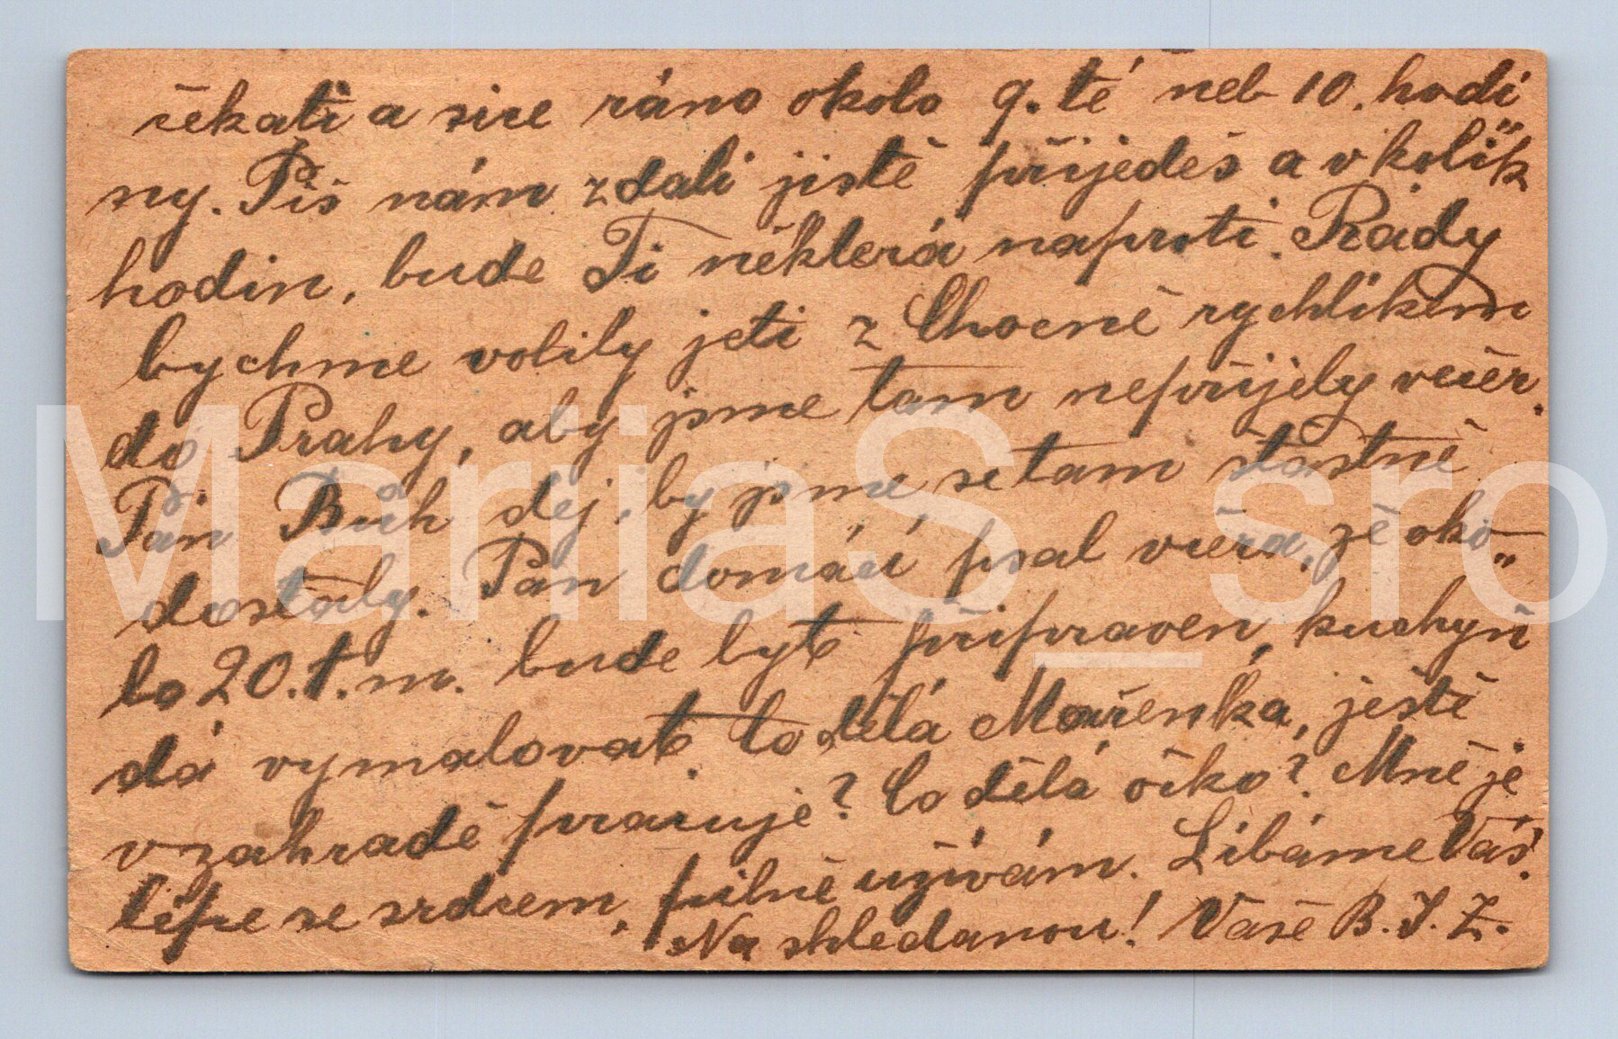 čekati a sice ráno okolo 9. té neb 10. hodi
ny. Piš nám zdali jistě přijedeš a v kolik"
hodin, bude Ti některá naproti. Rády
bychme volily jeti z Chocně rychlíkem
do Prahy, aby jsme tam nepřijely večer.
Pán Bůh dej, by jsme se tam šťastně
dostaly. Pan domácí psal včera, že oko-
lo 20. t. m. bude byt připraven, kuchyň"
dá vymalovat. Co dělá Mařenka, ještě
v zahradě pracuje? Co dělá očko? Mně je
lépe se srdcem, pilně užívám. Líbáme Vás.
Na shledanou! Vaše B. J. Z.
MariiaS_sro